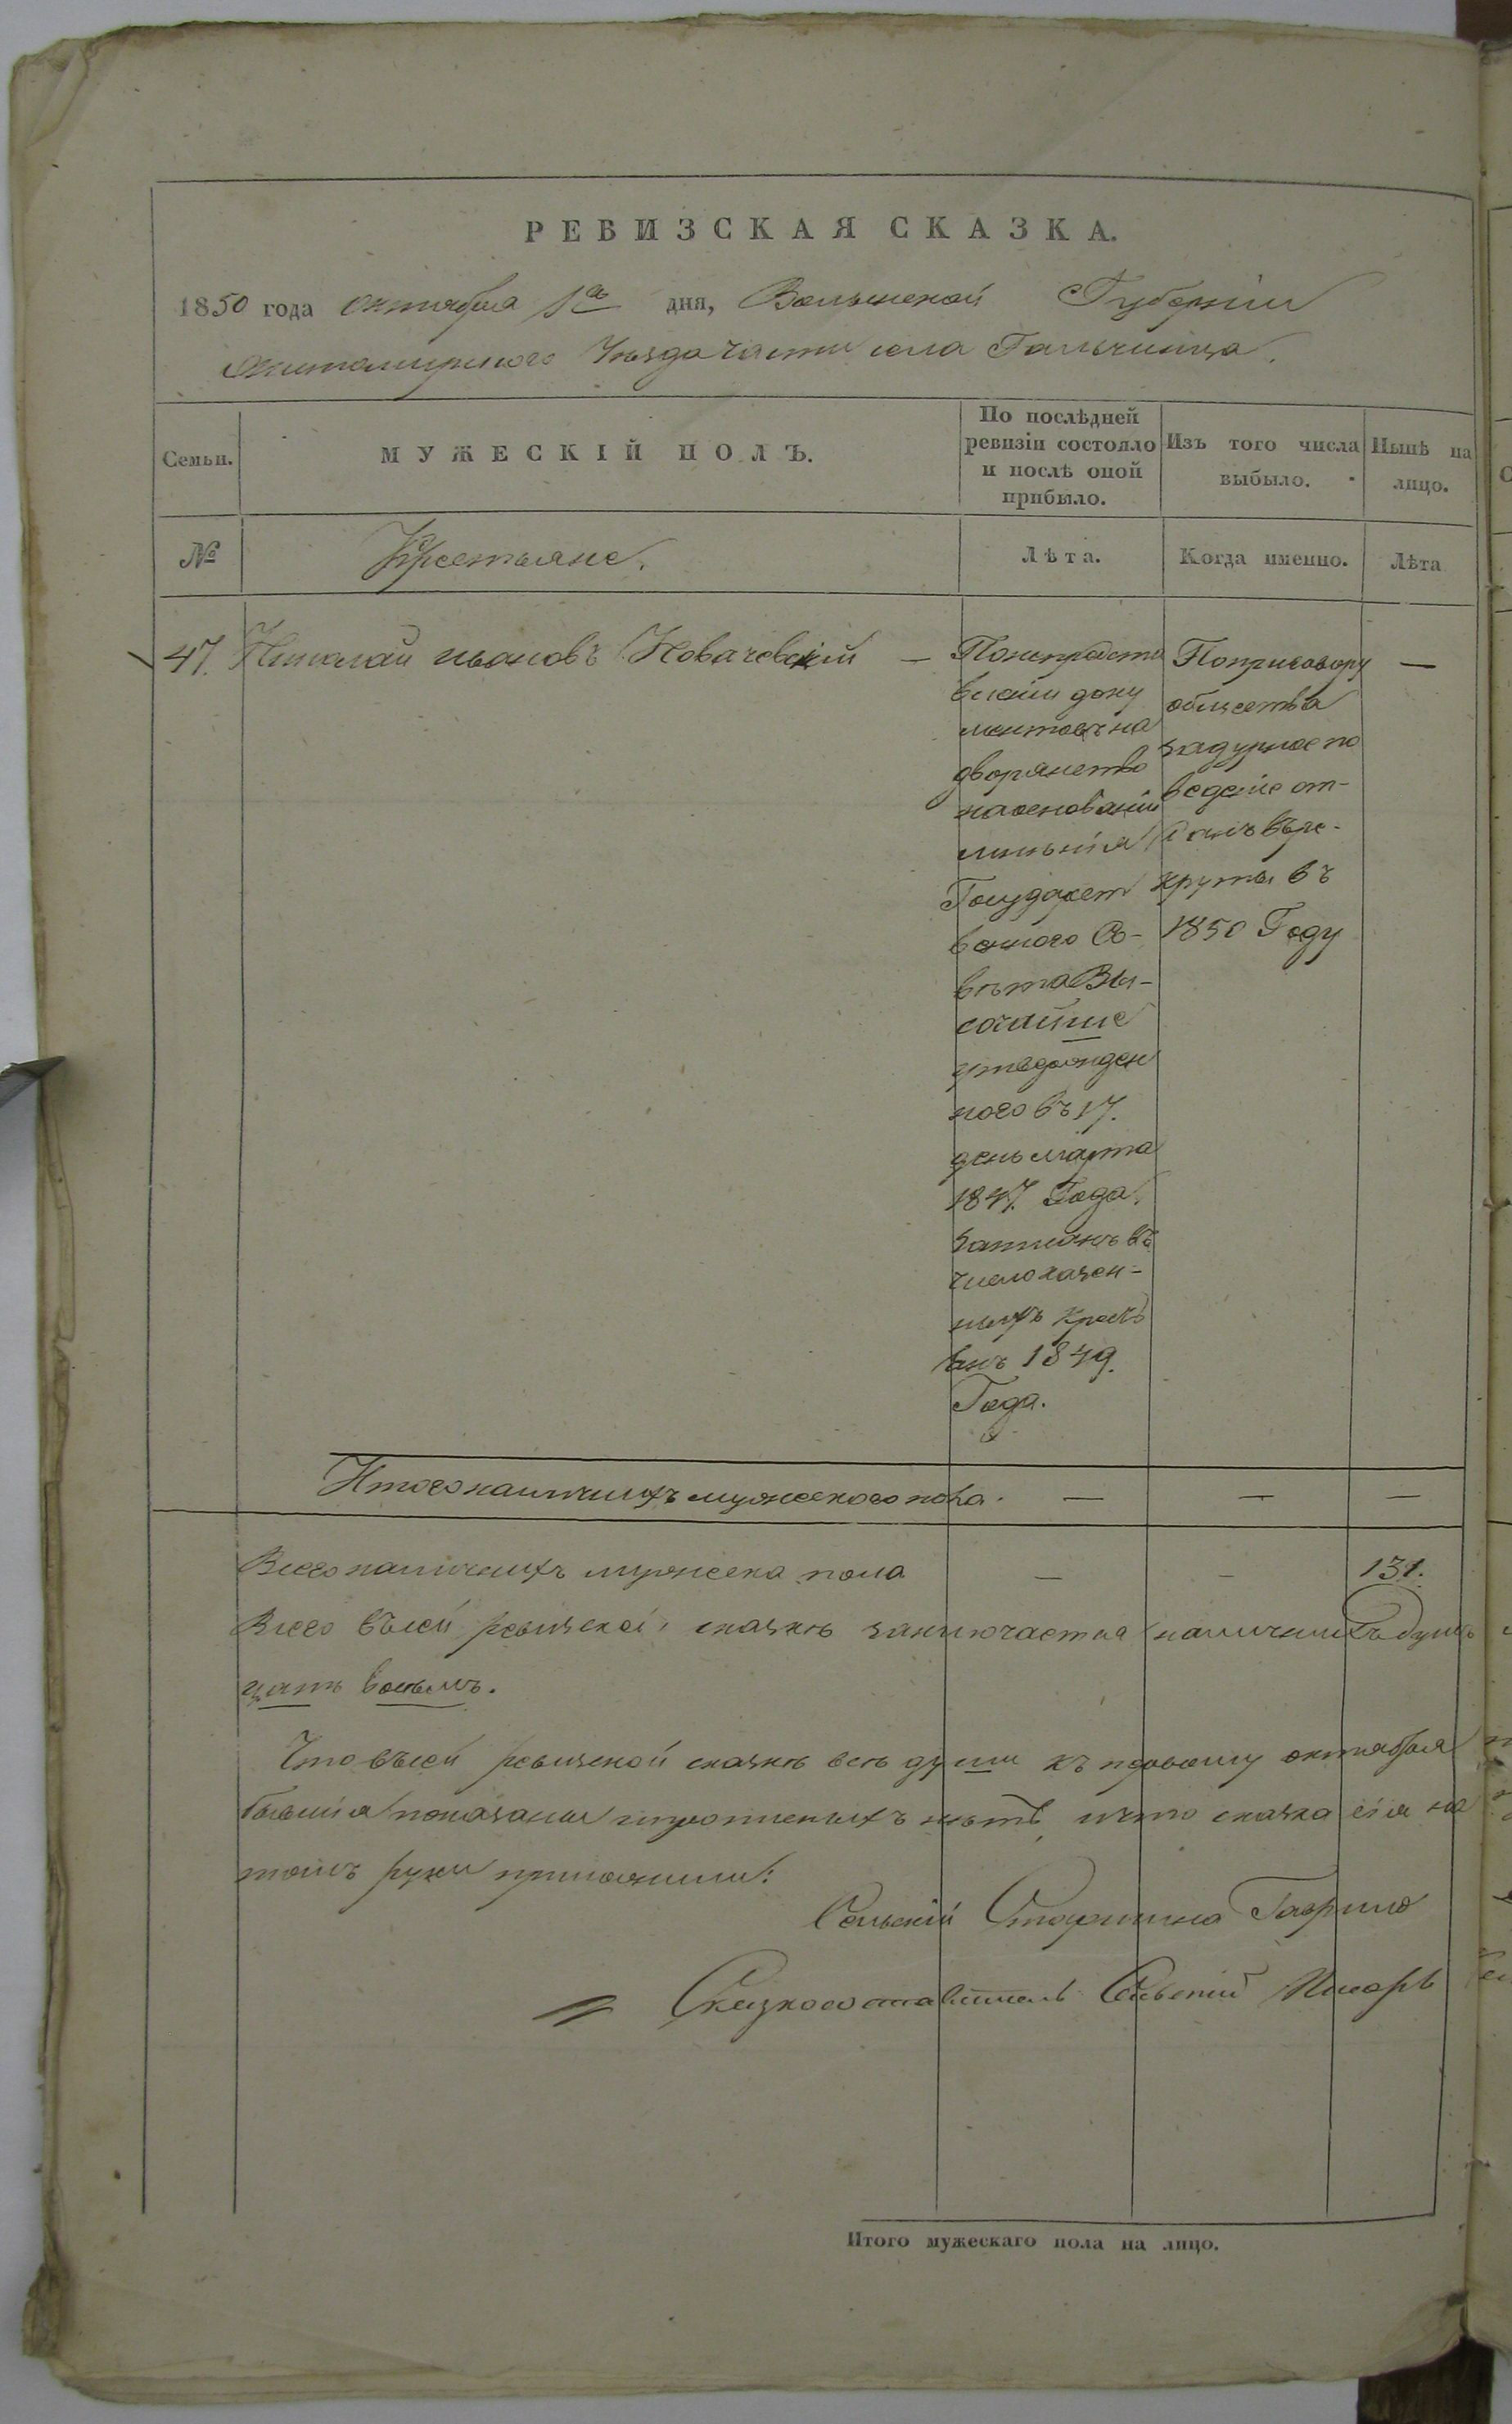 РЕВИЗСКАЯ СКАЗКА.
1850 года октября 1го дня, Волынской Губерніи
Житомирского Уезда части села Гальчинца.
Семьи.
МУЖЕСКІЙ ПОЛЪ.
По послѣдней ревизіи состояло и послѣ оной прибыло.
Изъ того числа выбыло.
Нынѣ на лицо.
№
Крестьяне.
Лѣта.
Когда именно.
Лѣта
47. Николай ивановъ Ковачевскій —
По непредста
вленіи доку
ментовъ на
дворянство
на основаніи
мнѣнія
Государст
венного Со-
вѣта Вы-
сочайше
утвержден
ного въ 17.
день марта
1847. Года.
записанъ въ
число казен-
ныхъ крестъ
янъ 1849.
Года.
По приговору
общества
за дурное по
ведение от-
данъ въ ре-
круты въ
1850 Году
—
Итого наличныхъ мужеского пола. — — —
Всего наличныхъ мужеска пола — — 131.
Всего въ сей ревизской сказкѣ заключается наличныхъ душъ
цать восемъ.
Что въ сей ревизской сказкѣ всѣ души къ первому октября
бывшія показаны и пропискныхъ нѣтъ, и что сказка сія на
томъ руки приложили:
Сельскій Старшина Гаврило
Сказкосоставитель Сельскій Писарь
Итого мужескаго пола на лицо.